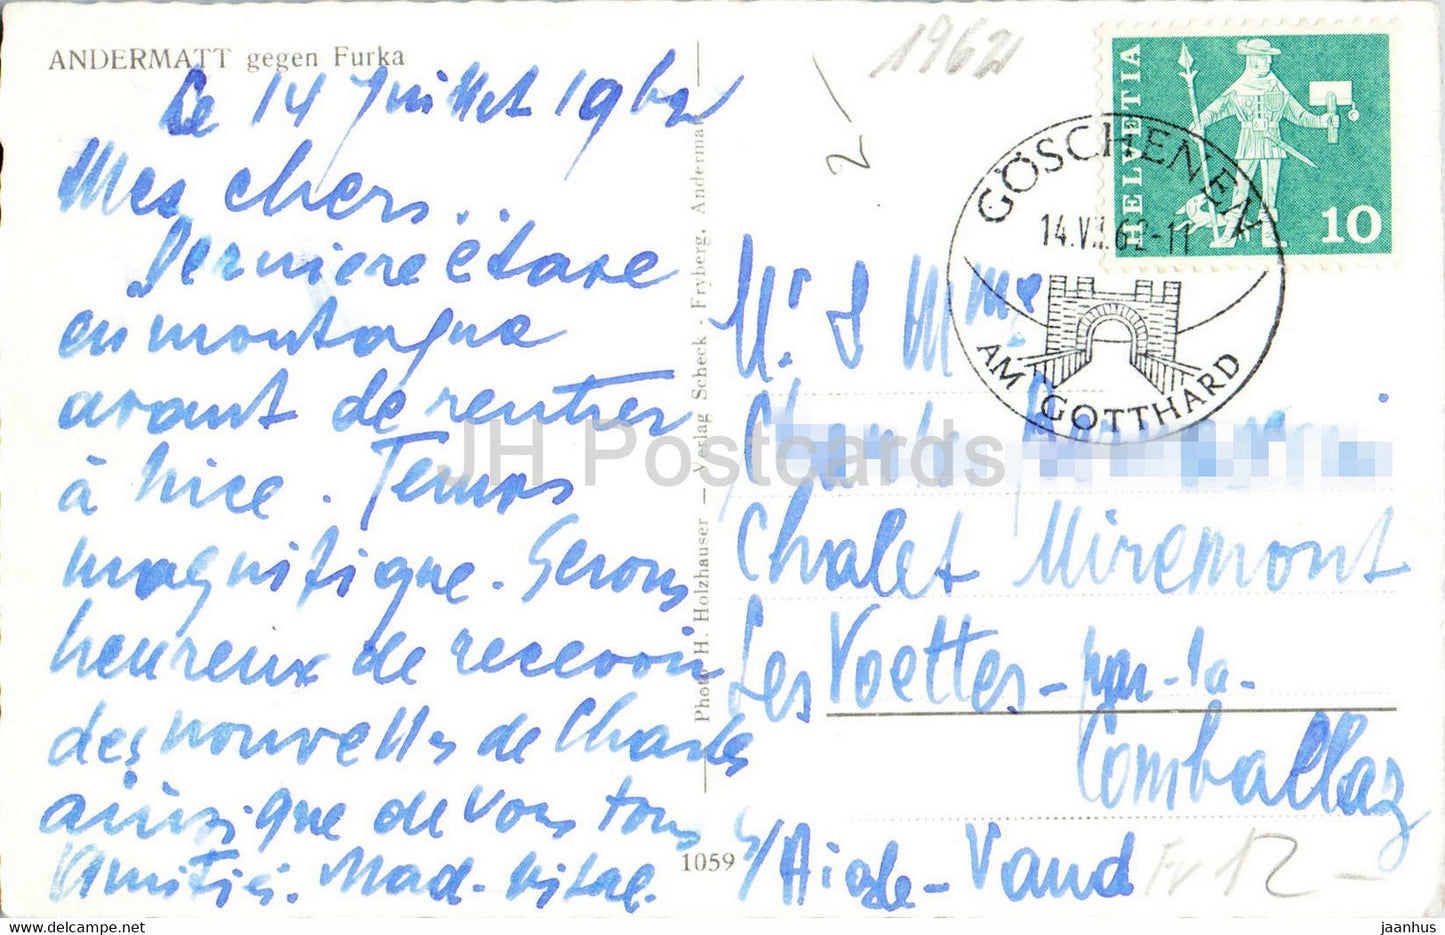 ANDERMATT gegen Furka
Le 14 Juillet 1962
Mes chers..
Derniere étape
en montagne
avant de rentrer
à Nice. Temps
magnifique. Serons
heureux de recevoir
des nouvelles de Charles
ainsi que de vous tous
Amitiés. Mad. Vital.
Photo H. Holzhauser — Verlag Scheck-Fryberg, Andermatt
1059
1962
2/
HELVETIA
10
GÖSCHENEN
14.VII.62-11
AM GOTTHARD
Mr & Mme
Charles
Chalet Miremont
Les Voettes-par-la-
Comballaz
s/Aigle-Vaud
Fr 12-
JH Postcards
www.delcampe.net
jaanhus